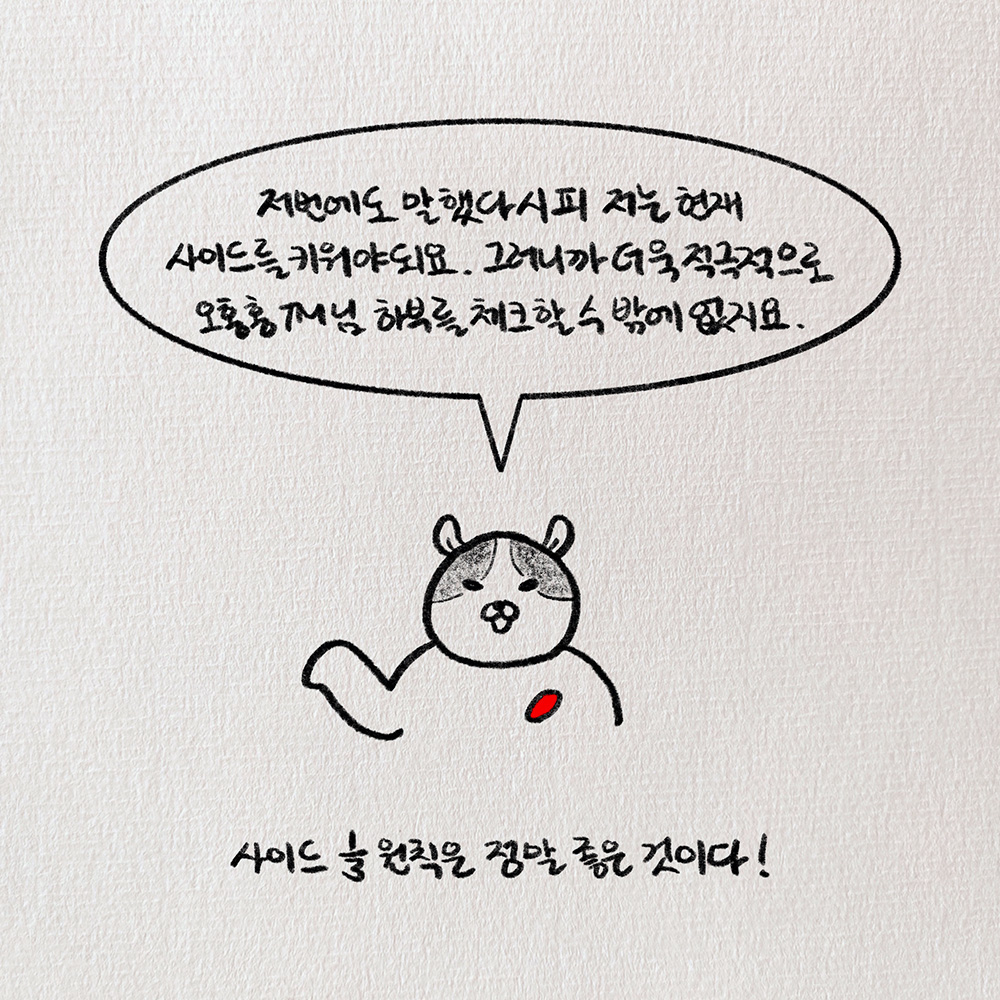 저번에도 말했다시피 저는 현재
사이드를 키워야되요. 그러니까 더욱 적극적으로
오홍홍 TM님 하복를 체크할 수 밖에 없지요.
사이드 늘 원칙은 정말 좋은 것이다!